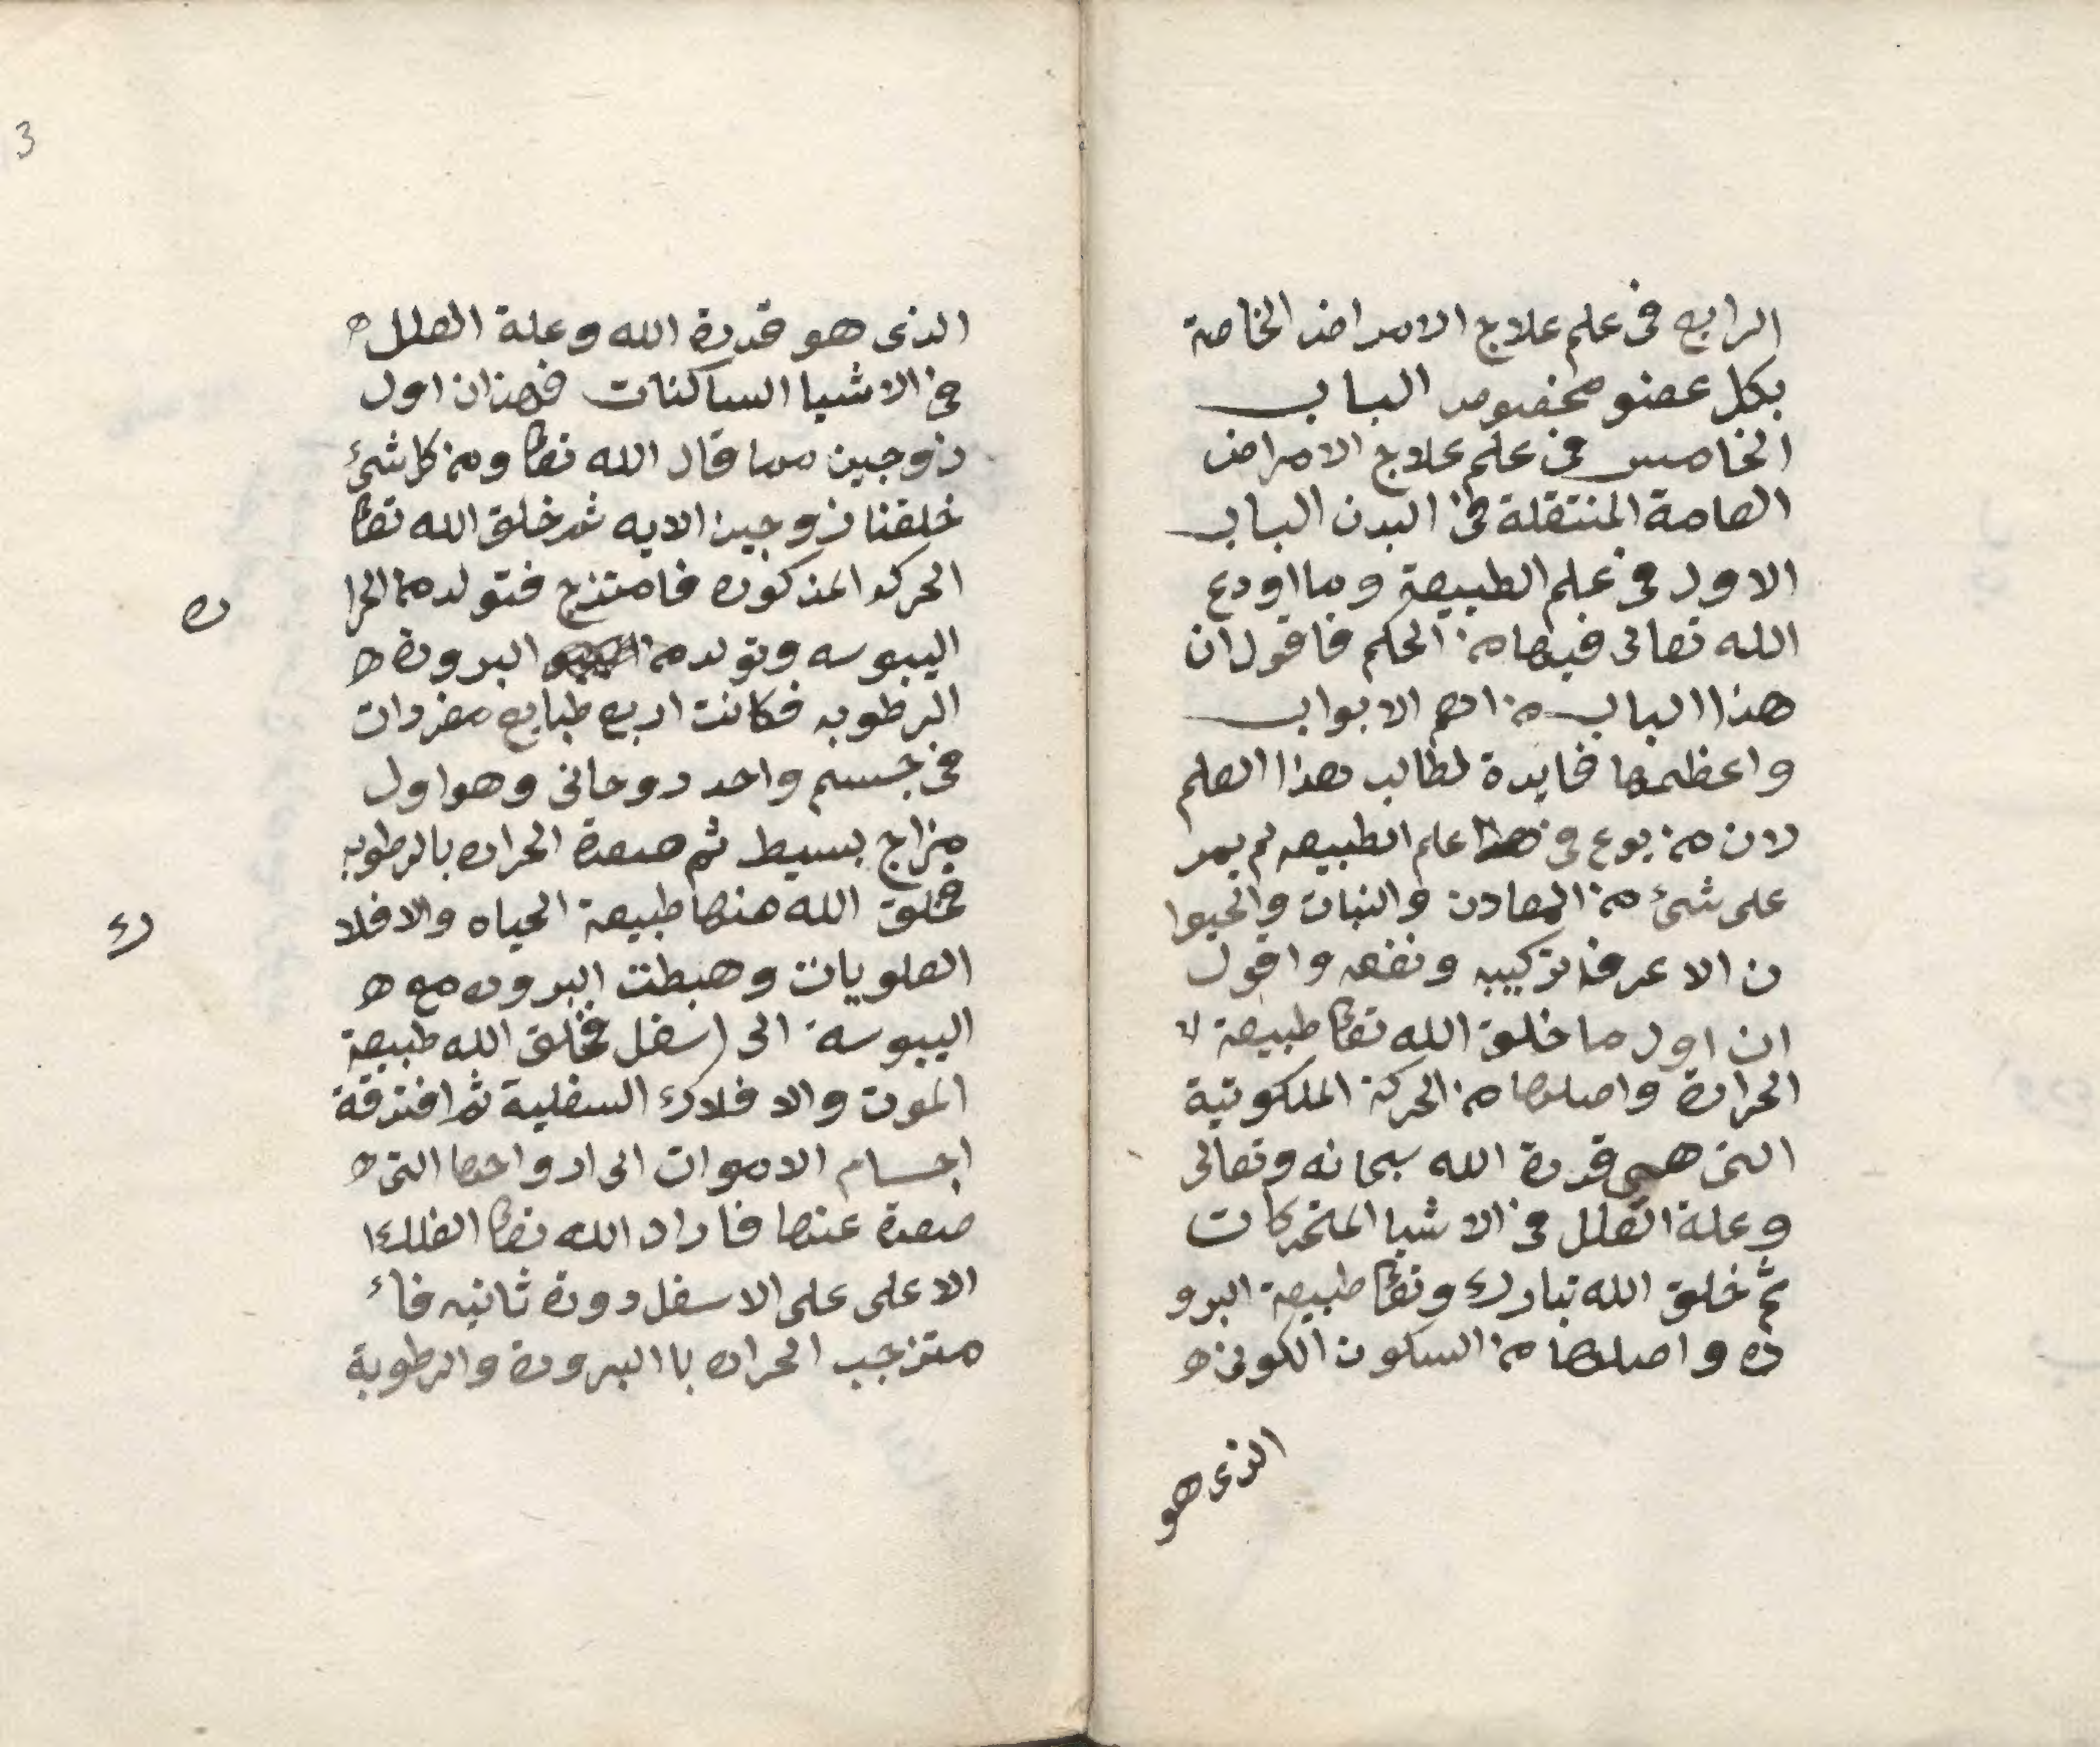 الرابع في علم علاج الامراض الخاصة
بكل عضو مخصوص الباب
الخامس في علم علاج الامراض
العامة المنتقلة في البدن الباب
الاول في علم الطبيعة وما اودع
الله تعالى فيها من الحكم فاقول ان
هذا الباب من اهم الابواب
واعظمها فايدة لطالب هذا العلم
لان من برع في هذا علم الطبيعه لم يمر
على شئ من المعادن والنبات والحيوا
ن الا عرف تركيبه ونفعه واقول
ان اول ما خلق الله تعا طبيعة
الحرارة واصلها من الحركة الملكوتية
التى هي قدرة الله سبحانه وتعالى
وعلة العلل في الاشيا المتحركات
ثم خلق الله تبارك وتعا طبيعة البرو
ده واصلها من السكون الكونى
الذى هو
3
الذى هو قدرة الله وعلة العلل
في الاشيا الساكنات فهذان اول
زوجين مما قال الله تعا ومن كل شئ
خلقنا زوجين الايه ثم خلق الله تعا
الحركه المذكوره فامتزج فتولد من الحرا
ره
اليبوسه وتولد من البرودة
الرطوبه فكانت اربع طبايع مفردات
في جسم واحد روحانى وهو اول
مزاج بسيط ثم صعدة الحراره بالرطوبه
فخلق الله منها طبيعة الحياه والافلا
ك
العلويات وهبطت البروده مع
اليبوسة الى اسفل فخلق الله طبيعة
الموت والافلاك السفلية ثم افترقة
اجسام الاموات الى ارواحها التى
صعدة عنها فاراد الله تعا الفلك
الاعلى على الاسفل دورة ثانيه فا
متزجب الحراره با البرودة والرطوبة